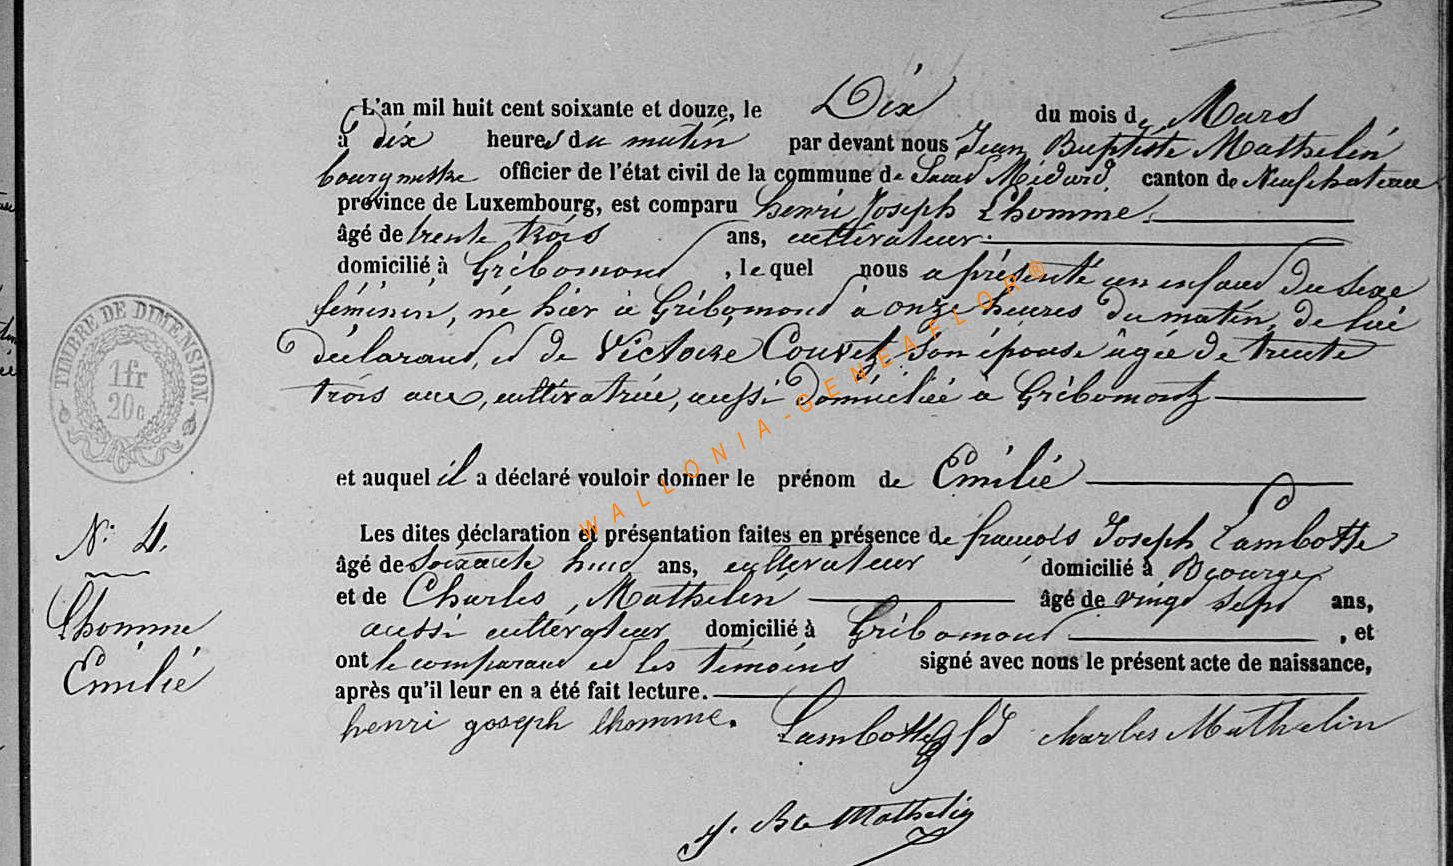 L'an mil huit cent soixante et douze, le Dix du mois de Mars
à dix heures du matin par devant nous Jean Baptiste Mathelin
bourgmestre officier de l'état civil de la commune de Saint Médard, canton de Neufchateau
province de Luxembourg, est comparu henri Joseph Lhomme
âgé de trente trois ans, cultivateur
domicilié à Gribomont, lequel nous a présenté un enfant du sexe
féminin, né hier à Gribomont à onze heures du matin, de lui
déclarant, et de Victoire Couvez, son épouse âgée de trente
trois ans, cultivatrice, aussi domiciliée à Gribomont
et auquel il a déclaré vouloir donner le prénom de Emilie
Les dites déclaration et présentation faites en présence de françois Joseph Lambotte
âgé de soixante huit ans, cultivateur domicilié à
et de Charles Mathelin âgé de vingt sept ans,
aussi cultivateur domicilié à Gribomont, et
ont le comparant et les témoins signé avec nous le présent acte de naissance,
après qu'il leur en a été fait lecture.
henri joseph lhomme. Lambotte charles Mathelin
J. Bte Mathelin
TIMBRE DE DIMENSION.
1fr
20c
N° 4.
Lhomme
Emilie
WALLONIA-GENEAFLOR®